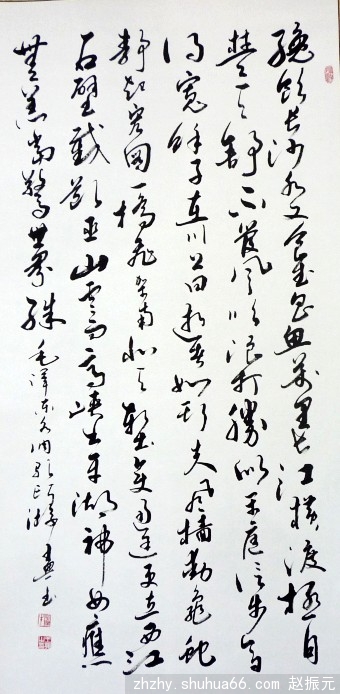 纔飲长沙水又食武昌魚萬里长江横渡極目
楚天舒不管风吹浪打勝似闲庭信步今日
得寬馀子在川上曰逝者如斯夫风樯動龜蛇
静起宏图一橋飛架南北天堑变通途更立西江
石壁截断巫山雲雨高峡出平湖神女應
無恙当驚世界殊 毛澤东 书
zhzhy.shuhua66.com 赵振元